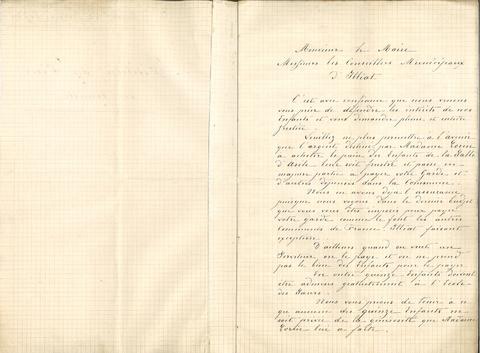 Monsieur le Maire
Messieurs les Conseillers Municipaux
d'Illiat
C'est avec confiance que nous venons
vous prier de défendre les intérêts de nos
Enfants et vous demander pleine et entière
justice.
Veuillez ne plus permettre à l'avenir
que l'argent destiné par Madame
à acheter le pain des Enfants de la Salle
d'Asile leur soit frustré et passe en
majeure partie a payer votre Garde et
d'autres dépenses dans la Commune.
Nous en avons déjà l'assurance
puisque nous voyons dans le dernier budget
que vous vous êtes imposés pour payer
votre garde comme le font les autres
Communes de France. Illiat faisant
exception.
D'ailleurs quand on veut un
Serviteur on le paye et on ne prend
pas le bien des Enfants pour le payer.
En outre quinze Enfants doivent
être admis gratuitement à l'Ecole
des Sœurs.
Nous vous prions de tenir à ce
que aucun des quinze Enfants ne
soit privé de la que Madame
lui a faite.